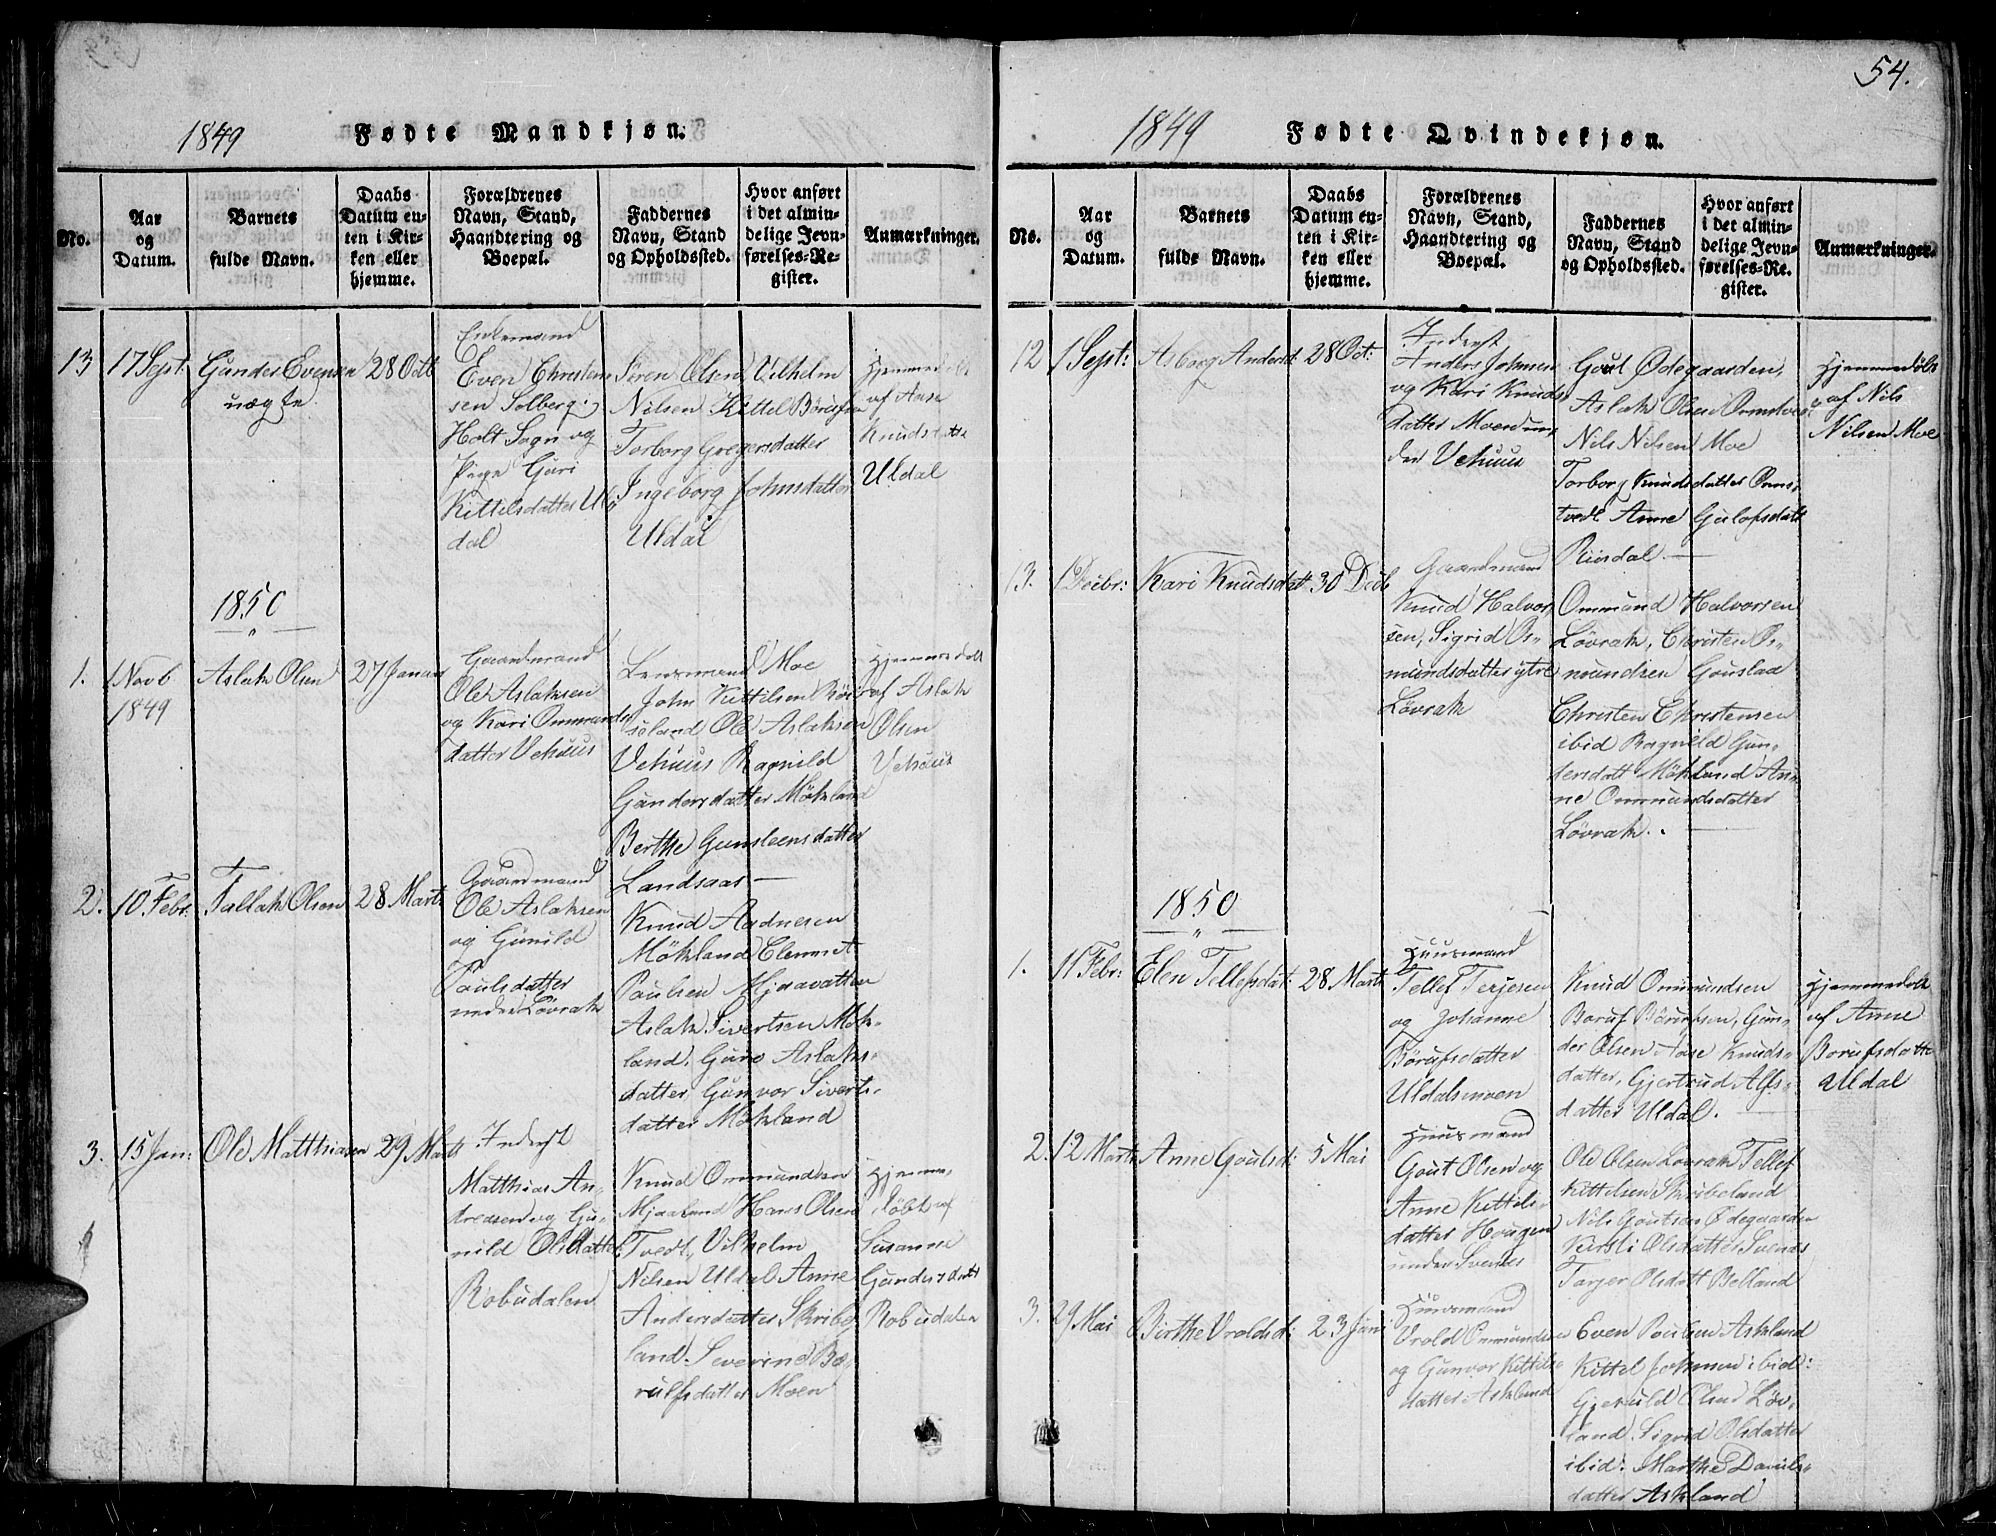 1849 Fødte Mandkjøn.
No.
Aar
og
Datum.
Barnets
fulde Navn.
Daabs
Datum en-
ten i Kir-
ken eller
hjemme.
Forældrenes
Navn, Stand,
Haandtering og
Boepæl.
Faddernes
Navn, Stand
og Opholdssted.
Hvor anført
i det almin-
delige Jevn-
førelses-Re-
gister.
Anmærkninger.
13
17 Sept:
Gunder Evensen
uægte
28 Octb
Enkemand
Even Christen
sen Solberg
Holt Sogn og
Pige Guri
Kittelsdatter Ul
dal
Søren Olsen Vilhelm
Nilsen Kittel Børufsen
Torborg Gregersdatter
Ingeborg Johnsdatter
Uldal
Hjemmedøbt
af Aase
Knudsdatte
Uldal
1850
1.
1 Novb
1849
Aslak Olsen
27 Januar
Gaardmand
Ole Aslaksen
og Kari Ommunds
datter Vehuus
Lensmand Moe
John Kittilsen Røi
seland Ole Aslaksen
Vehuus Ragnild
Gundersdatter Mökland
Berthe Gunsteensdatter
Landsaas —
Hjemmedøbt
af Aslak
Olsen
Vehuus
2.
10 Febr:
Tallak Olsen
28 Mart:
Gaardmand
Ole Aslaksen
og Gunild
Poulsdatter
under Løvrak
Knud Aadnesen
Mökland Clemmet
Poulsen Mjaavatten
Aslak Sivertsen Møk-
land, Guro Aslaks-
datter, Gunvor Siverts-
datter Mökland
3.
15 Jan:
Ole Matthiasen
29 Marts
Inderst
Matthias An-
dreasen og Gu-
nild Olsdatter
Robudalen
Knud Ommundsen
Mjaaland Hans Olsen
Tvedt, Vilhelm
Nilsen Uldal Anne
Andersdatter Skribe
land. Severine Bø-
rulfsdatter Moen
Hjemme-
døbt af
Susanne
Gundersdatt
Robudalen
54.
1849 Fødte Qvindekjøn.
No.
Aar
og
Datum.
Barnets
fulde Navn.
Daabs
Datum en-
ten i Kir-
ken eller
hjemme.
Forældrenes
Navn, Stand,
Haandtering og
Boepæl.
Faddernes
Navn, Stand
og Opholdssted.
Hvor anført
i det almin-
delige Jevn-
førelses-Re-
gister.
Anmærkninger.
12
1 Sept:
Asborg Andersd:
28 Oct:
Inderst
Anders Johnsen
og Kari Knuds
datter Moen un-
der Vehuus
Gout Ødegaarden,
Aslak Olsen Omstvedt
Nils Nilsen Moe
Torborg Knudsdatter Oms-
tvedt Anne Gulofsdatt
Riisdal. —
Hjemmedøbt
af Nils
Nilsen Moe
13.
1 Decbr:
Kari Knudsdatt
30 Decb
Gaardmand
Knud Halvor
sen, Sigrid Os-
mundsdatter ytre
Løvrak
Ommund Halvorsen
Løvrak, Christen Os-
mundsen Gouslaa
Christen Christensen
ibid Ragnild Gun-
dersdatt Mökland An-
ne Ommundsdatter
Løvrak. —
1850
1.
11 Febr:
Elen Tellefsdat:
28 Mart
Huusmand
Tellef Terjesen
og Johanne
Børufsdatter
Uldalsmoen
Knud Ommundsen
Boruf Børufsen, Gun-
der Olsen Aase Knuds-
datter, Gjertrud Alfs-
datter Uldal. —
Hjemmedøbt
af Anne
Borufsdatte
Uldal
2.
12 Marts
Anne Goutsd:
5 Mai
Huusmand
Gout Olsen og
Anne Kittils-
datter Hougen
under Svenes
Ole Olsen Løvrak Tellef
Kittelsen Skribeland
Nils Goutsen Ødegaarden
Kirsti Olsdatter Svenes
Tarjer Olsdatt Belland
3.
29 Mai
Birthe Vraldsd:
23 Juni
Huusmand
Vrald Ommundsen
og Gunvor Kittels
datter Askland
Even Poulsen Askland
Kittel Johnsen ibid:
Gjeruld Olsen Løv-
land. Sigrid Olsdatter
ibid: Marthe Daniels-
datter Askland